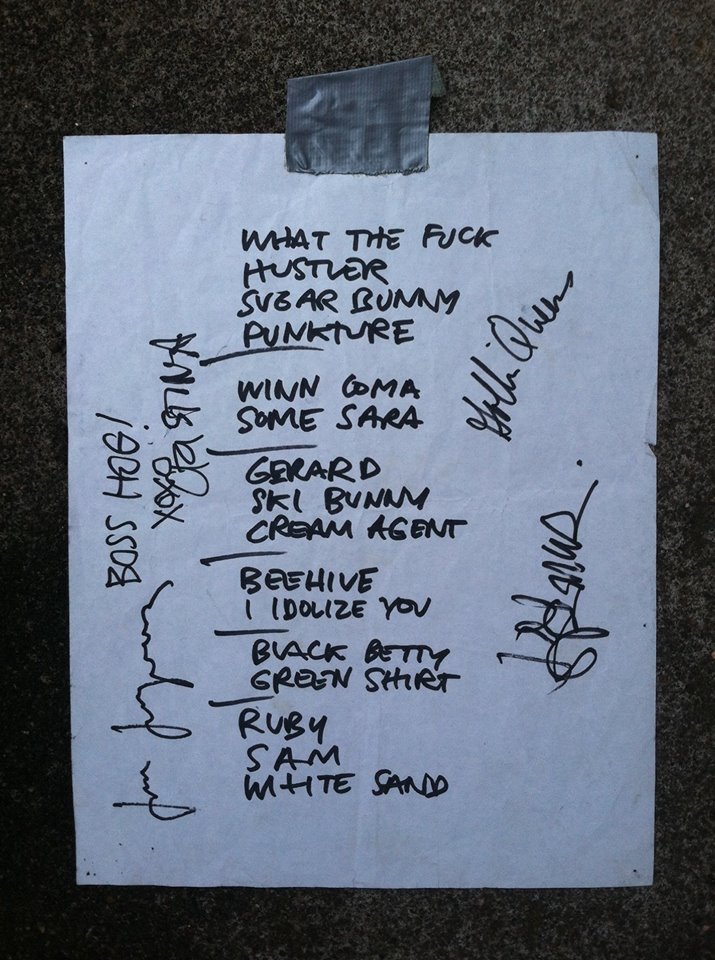 WHAT THE FUCK
HUSTLER
SUGAR BUNNY
PUNKTURE
WINN COMA
SOME SARA
GERARD
SKI BUNNY
CREAM AGENT
BEEHIVE
I IDOLIZE YOU
BLACK BETTY
GREEN SHIRT
RUBY
SAM
WHITE SAND
BOSS HOG!
Hollis Queen